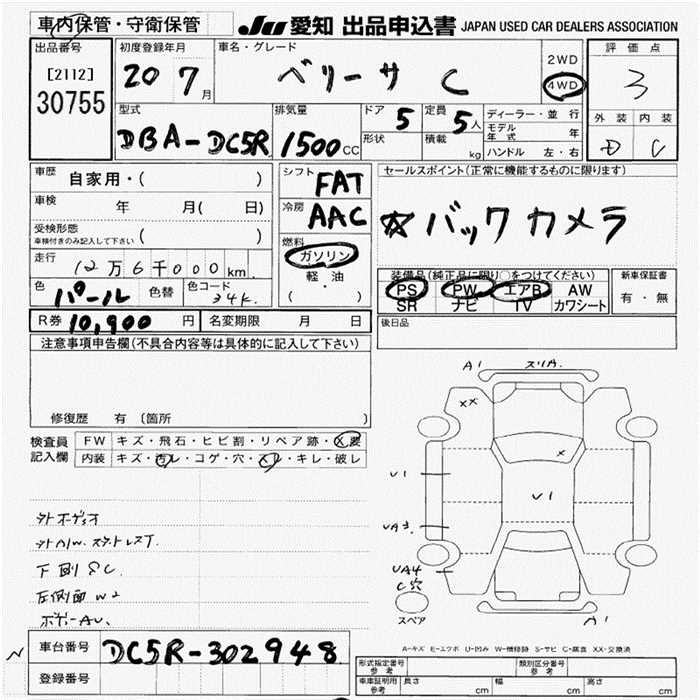 車内保管・守衛保管
JU 愛知 出品申込書 JAPAN USED CAR DEALERS ASSOCIATION
出品番号
[2112]
30755
初度登録年月
20 7月
車名・グレード
ベリーサ C
2WD
4WD
評価点
3
外装 内装
D C
型式
DBA-DC5R
排気量
1500CC
ドア 5
形状
定員 5人
積載 kg
ディーラー・並行
モデル年式 年
ハンドル 左・右
車歴 自家用・( )
車検 年 月( 日)
受検形態
車検付きのみ記入して下さい ( )
走行 12万6千000km
色 パール 色替 色コード 34K
R券 10,900円 名変期限 月 日
シフト FAT
冷房 AAC
燃料
ガソリン
軽・油
( )
セールスポイント(正常に機能するものに限ります)
☆バックカメラ
装備品(純正品に限り○をつけてください)
PS PW エアB AW
SR ナビ TV カワシート
新車保証書
有・無
後日品
注意事項申告欄(不具合内容等は具体的に記入して下さい)
修復歴 有 (箇所 )
検査員記入欄
FW キズ・飛石・ヒビ割・リペア跡・X要
内装 キズ・汚レ・コゲ・穴・スレ・キレ・破レ
下廻SC
左側面W2
ボデーAU
A1
XX
X
U1
U1
UA3
UA4
C穴
A1
スペア
A=キズ E=エクボ U=凹み W=補修跡 S=サビ C=腐食 XX=交換済
車台番号 DC5R-302948
登録番号
形式指定番号 参考
類別区分番号 参考
車庫証明用 参考 長さ cm 幅 cm 高さ cm